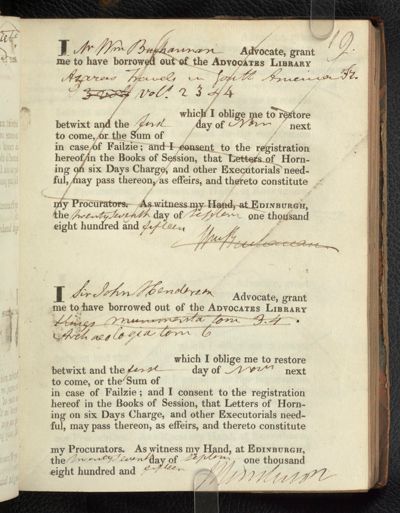 19.
I Mr Wm Buchannan Advocate, grant
me to have borrowed out of the ADVOCATES LIBRARY
Azaras travels in South America Fr.
3 vol vols. 2 3 & 4
which I oblige me to restore
betwixt and the first day of Novr next
to come, or the Sum of
in case of Failzie; and I consent to the registration
hereof in the Books of Session, that Letters of Horn-
ing on six Days Charge, and other Executorials need-
ful, may pass thereon, as effeirs, and thereto constitute
my Procurators. As witness my Hand, at EDINBURGH,
the twenty seventh day of Septem one thousand
eight hundred and fifteen
Wm Buchanan
I Sir John Henderson Advocate, grant
me to have borrowed out of the ADVOCATES LIBRARY
Kings munimenta tom 3.4.
Archaeologia tom 6
which I oblige me to restore
betwixt and the first day of Novr next
to come, or the Sum of
in case of Failzie; and I consent to the registration
hereof in the Books of Session, that Letters of Horn-
ing on six Days Charge, and other Executorials need-
ful, may pass thereon, as effeirs, and thereto constitute
my Procurators. As witness my Hand, at EDINBURGH,
the twenty seventh day of Septem one thousand
eight hundred and fifteen
J Henderson